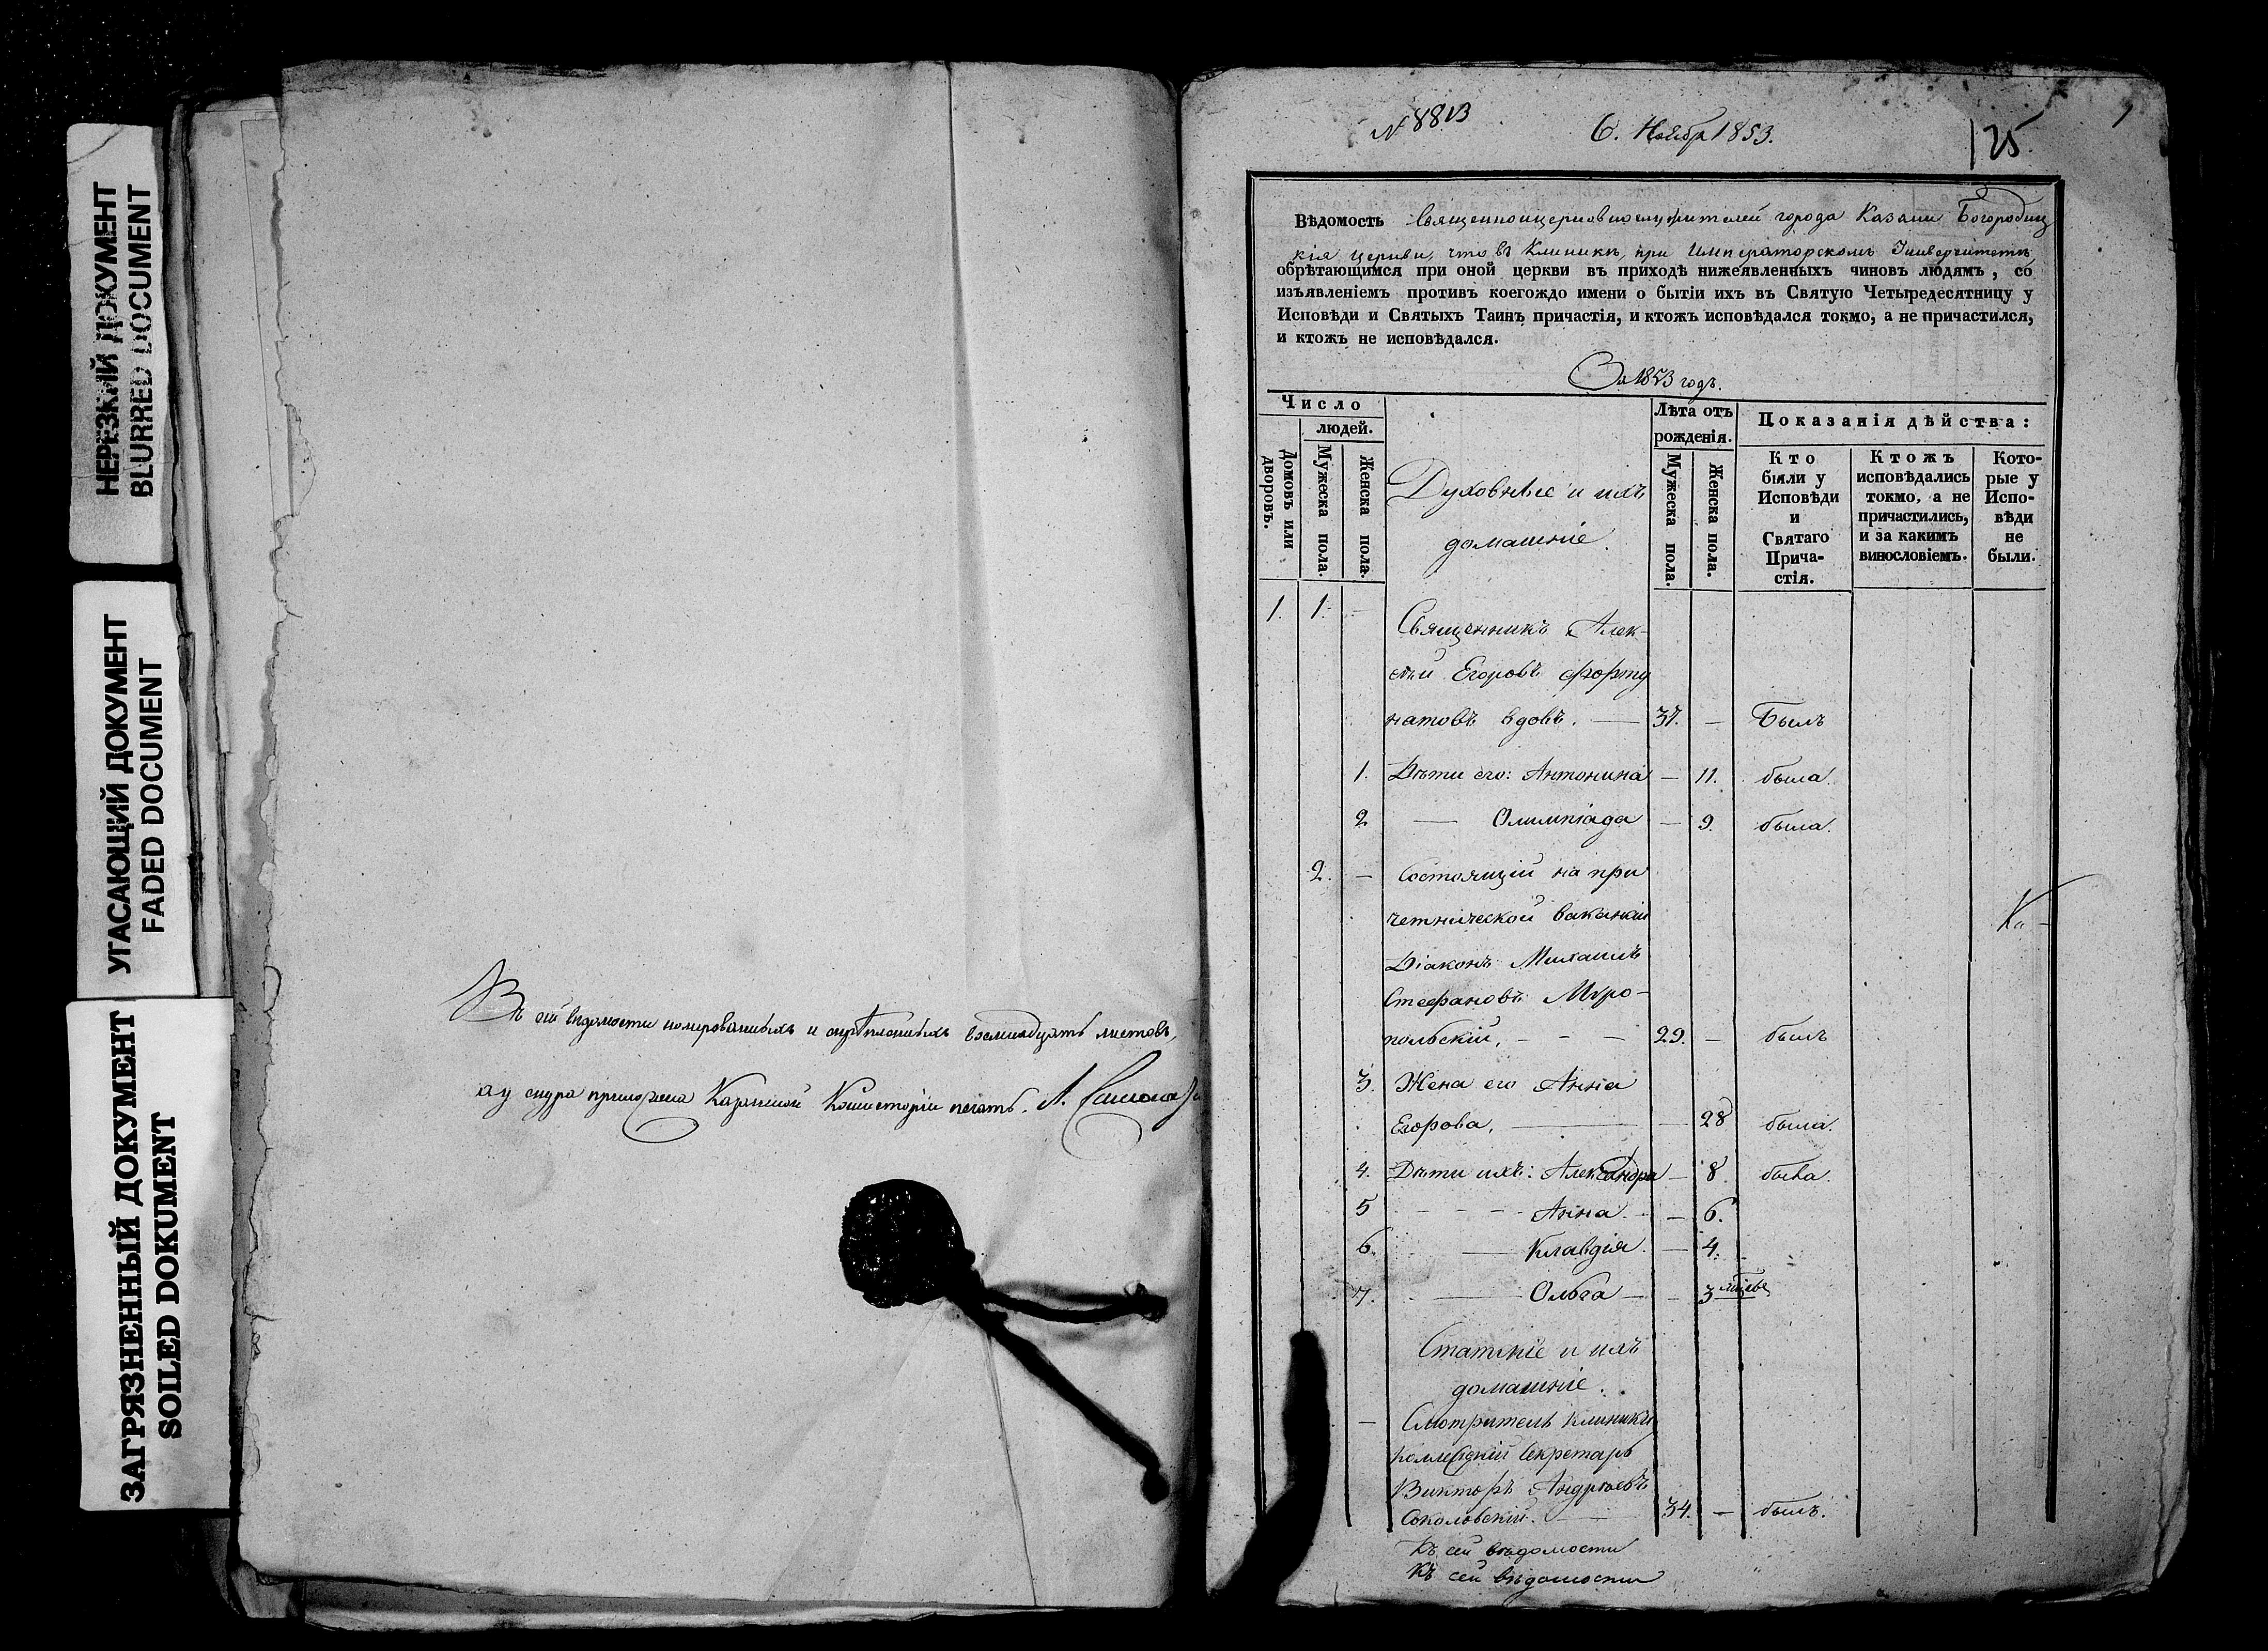 НЕРЕЗКИЙ ДОКУМЕНТ
BLURRED DOCUMENT
УГАСАЮЩИЙ ДОКУМЕНТ
FADED DOCUMENT
ЗАГРЯЗНЕННЫЙ ДОКУМЕНТ
SOILED DOKUMENT
Въ сей ведомости нумерованныхъ и скрѣпленныхъ восемнадцать листовъ,
а у снура приложена Казанской Консисторіи печать.
N 8813
6. Ноября 1853.
125
Вѣдомость Священноицерковнослужителей города Казани Богородиц
кія церкви, что въ Клиникѣ, при Императорскомъ Университетѣ,
обрѣтающимся при оной церкви въ приходѣ нижеявленныхъ чиновъ людямъ, со
изъявленіемъ противъ коегождо имени о бытіи ихъ въ Святую Четыредесятницу у
Исповѣди и Святыхъ Таинъ причастія, и ктожъ исповѣдался токмо, а не причастился,
и ктожъ не исповѣдался.
За 1853 годъ.
Число
людей.
Домовъ или дворовъ.
Мужеска пола.
Женска пола.
Духовные и ихъ
домашніе.
Лѣта отъ
рожденія.
Мужеска пола.
Женска пола.
Показанія дѣйства:
Кто
были у
Исповѣди
и
Святаго
Прича-
стія.
Ктожъ
исповѣдались
токмо, а не
причастились,
и за какимъ
винословіемъ.
Кото-
рые у
Испо-
вѣди
не
были.
1. 1. – Священникъ Алек-
сѣй Егоровъ Форту
натовъ вдовъ. — 37. – Былъ
1. Дѣти его: Антонина – 11. была.
2 — Олимпіада – 9. была.
2. – Состоящій на при
четнической вакансіи
Діаконъ Михаилъ
Стефановъ Мѵро-
польскій, – – – 29. – былъ
3. Жена его Анна
Егорова, — – 28 была.
4. Дѣти ихъ: Александра – 8. была.
5 – – – Анна. – – 6.
6. — Клавдія. – 4.
7. — Ольга – – 3
Статскіе и ихъ
домашніе.
– Смотритель клиники
Коллежскій Секретарь
Викторъ Андреевъ
Соколовскій. — 34. – былъ.
Къ сей вѣдомости
Къ сей вѣдомости